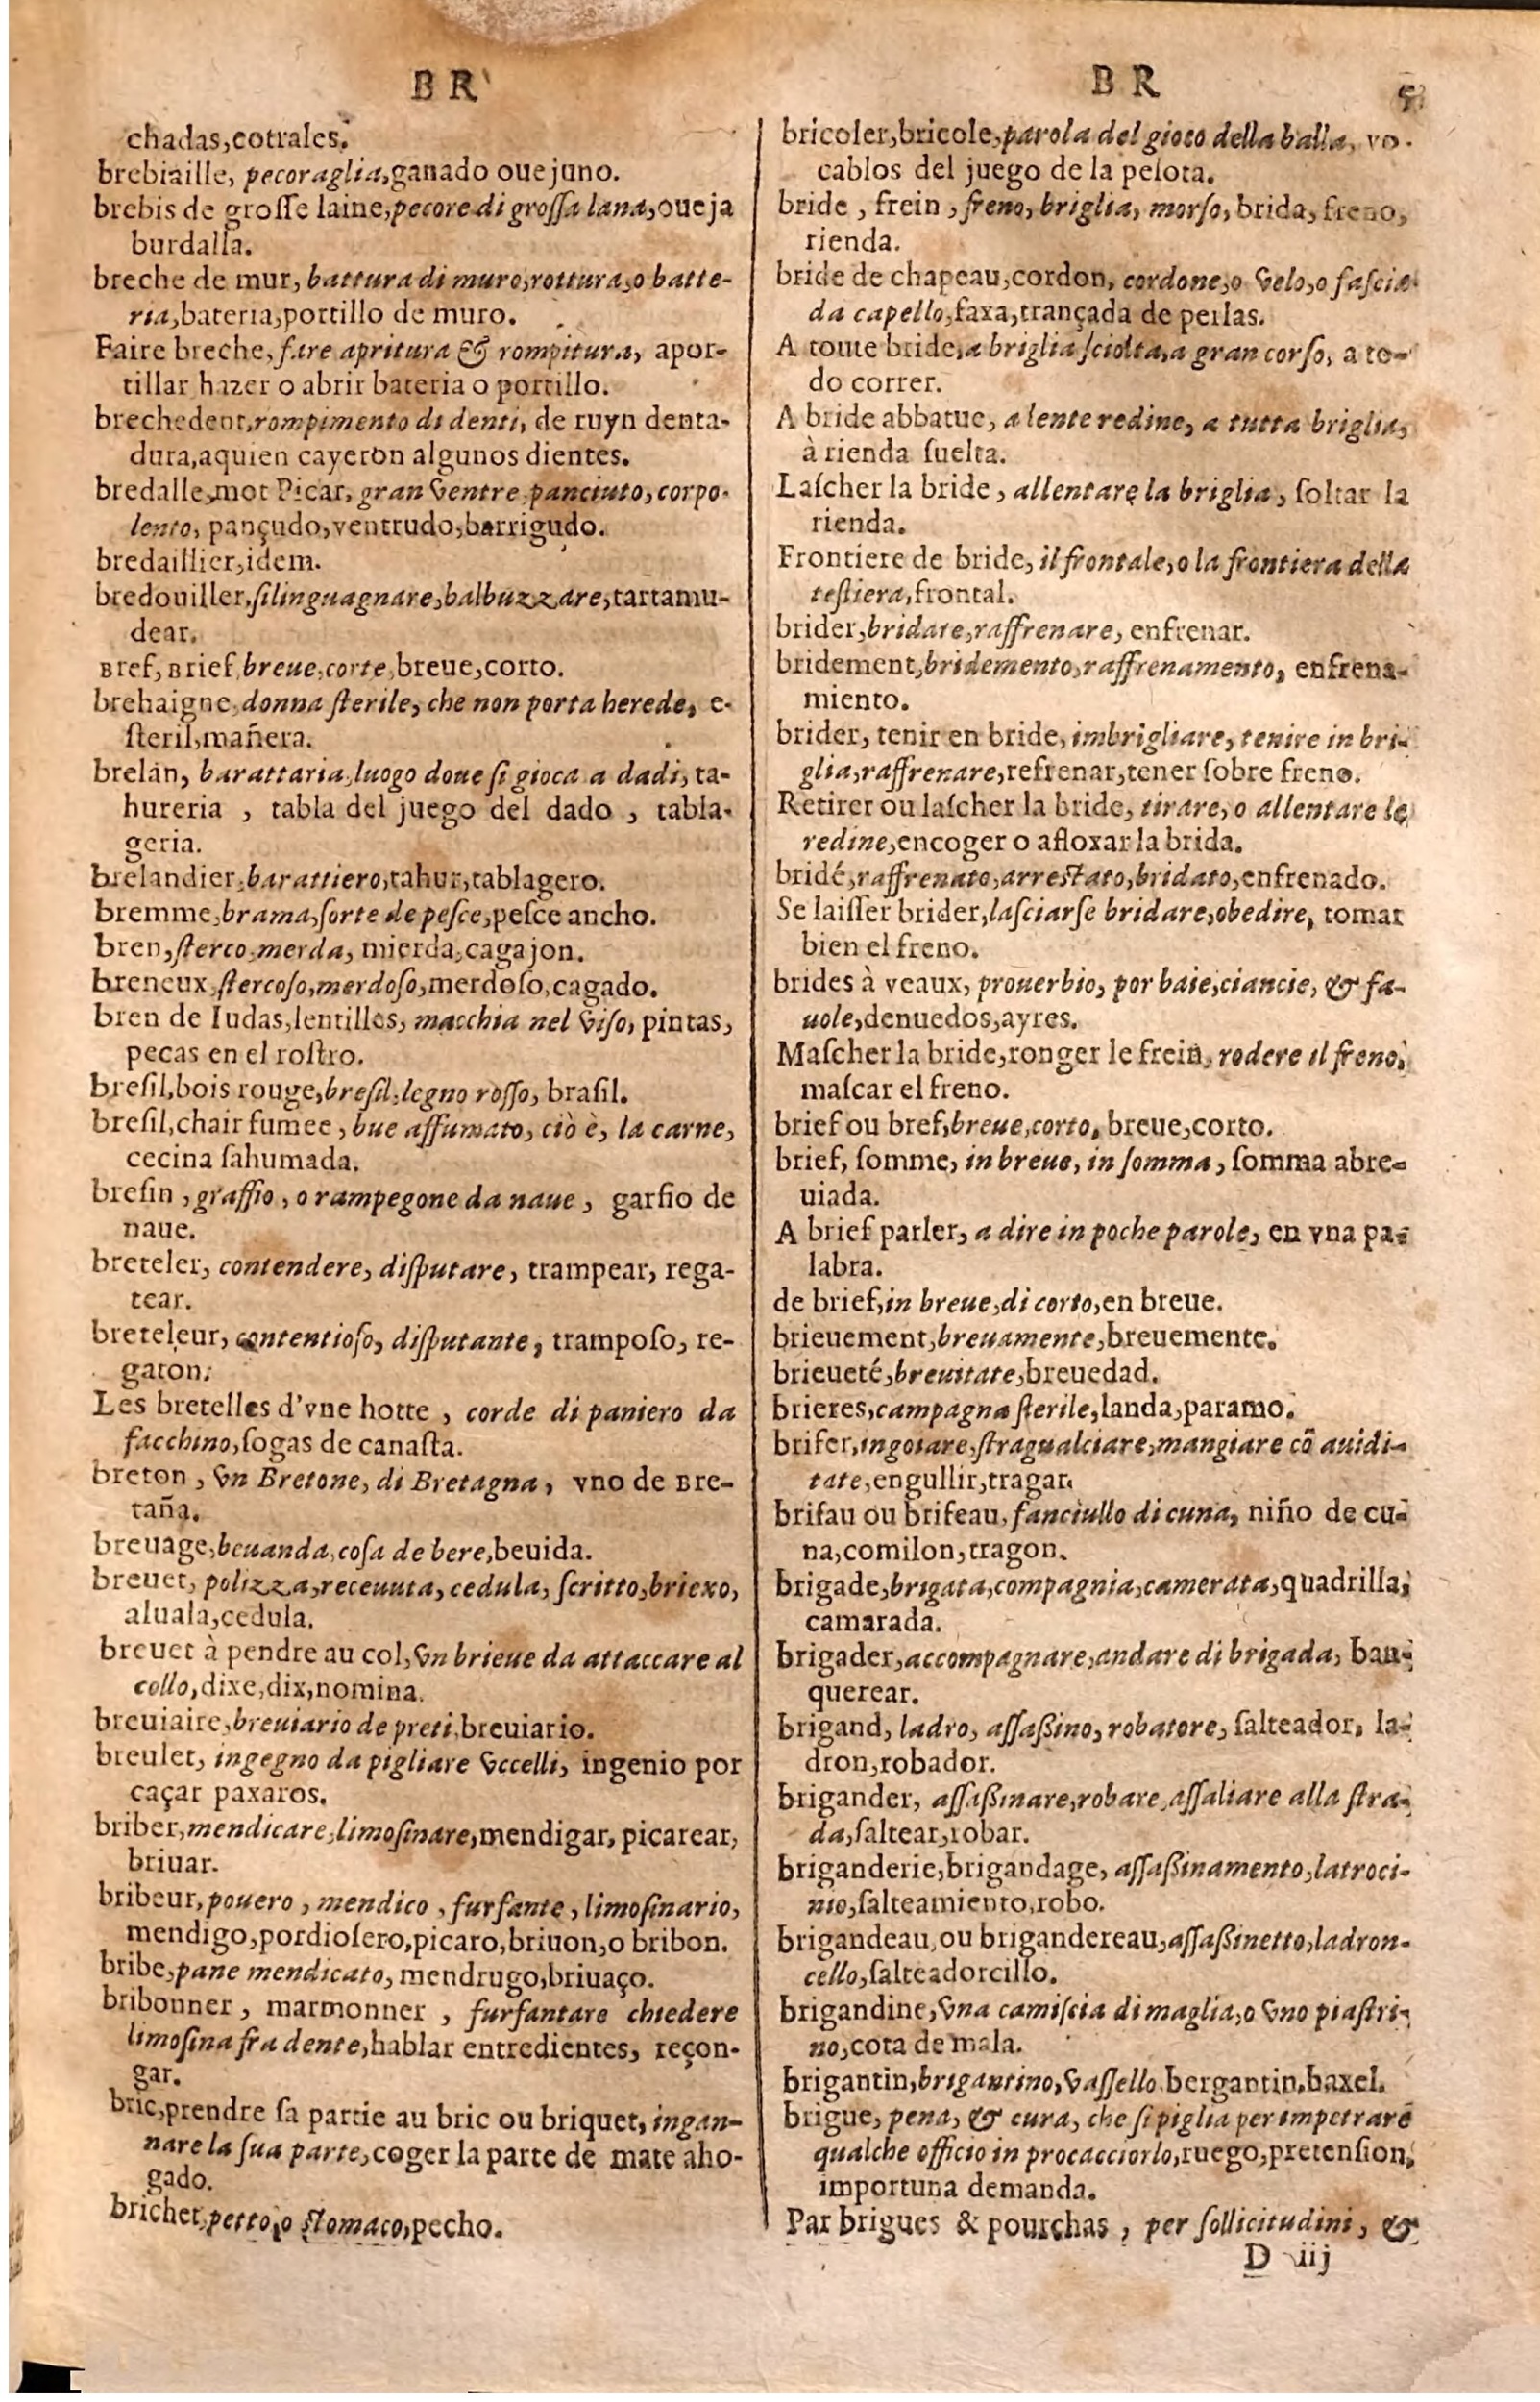 B R
chadas,cotrales.
brebiaille, pecoraglia,ganado ouejuno.
brebis de grosse laine,pecore di grossa lana,oueja
burdalla.
breche de mur, battura di muro,rottura,o batte-
ria,bateria,portillo de muro.
Faire breche, fare apritura & rompitura, apor-
tillar hazer o abrir bateria o portillo.
brechedent,rompimento di denti, de ruyn denta-
dura,aquien cayeron algunos dientes.
bredalle,mot Picar, gran ventre panciuto, corpo-
lento, pançudo,ventrudo,barrigudo.
bredaillier,idem.
bredouiller,silinguagnare,balbuzzare,tartamu-
dear.
Bref, Brief,breue,corte,breue,corto.
brehaigne,donna ſterile, che non porta herede, e-
ſteril,mañera.
brelan, barattaria,luogo doue ſi gioca a dadi, ta-
hureria , tabla del juego del dado , tabla-
geria.
brelandier,barattiero,tahur,tablagero.
bremme,brama,ſorte de peſce,peſce ancho.
bren,ſterco,merda, mierda,cagajon.
breneux,ſtercoſo,merdoſo,merdoſo,cagado.
bren de Iudas,lentilles, macchia nel viſo, pintas,
pecas en el roſtro.
breſil,bois rouge,breſil,legno roſſo, braſil.
breſil,chair fumee , bue affumato, ciò è, la carne,
cecina ſahumada.
breſin , graffio , o rampegone da naue , garfio de
naue.
breteler, contendere, diſputare, trampear, rega-
tear.
breteleur, contentioſo, diſputante, trampoſo, re-
gaton.
Les bretelles d'vne hotte , corde di paniero da
facchino,ſogas de canaſta.
breton , vn Bretone, di Bretagna, vno de Bre-
taña.
breuage,beuanda,coſa de bere,beuida.
breuet, polizza,receuuta, cedula, ſcritto,briexo,
aluala,cedula.
breuet à pendre au col,vn brieue da attaccare al
collo,dixe,dix,nomina.
breuiaire,breuiario de preti,breuiario.
breulet, ingegno da pigliare vccelli, ingenio por
caçar paxaros.
briber,mendicare,limoſinare,mendigar, picarear,
briuar.
bribeur,pouero , mendico , furfante , limoſinario,
mendigo,pordioſero,picaro,briuon,o bribon.
bribe,pane mendicato, mendrugo,briuaço.
bribonner , marmonner , furfantare chiedere
limoſina fra dente,hablar entredientes, reçon-
gar.
bric,prendre ſa partie au bric ou briquet, ingan-
nare la ſua parte,coger la parte de mate aho-
gado.
brichet,petto,o ſtomaco,pecho.
B R
bricoler,bricole,parola del gioco della balla, vo-
cablos del juego de la pelota.
bride , frein , freno, briglia, morſo, brida, freno,
rienda.
bride de chapeau,cordon, cordone,o velo,o faſcia
da capello,faxa,trançada de perlas.
A toute bride,a briglia ſciolta,a gran corſo, a to-
do correr.
A bride abbatue, a lente redine, a tutta briglia,
à rienda ſuelta.
Laſcher la bride , allentare la briglia, ſoltar la
rienda.
Frontiere de bride, il frontale,o la frontiera della
teſtiera,frontal.
brider,bridare,raffrenare, enfrenar.
bridement,bridemento,raffrenamento, enfrena-
miento.
brider, tenir en bride, imbrigliare, tenire in bri-
glia,raffrenare,refrenar,tener ſobre freno.
Retirer ou laſcher la bride, tirare, o allentare le
redine,encoger o afloxar la brida.
bridé,raffrenato,arreſtato,bridato,enfrenado.
Se laiſſer brider,laſciarſe bridare,obedire, tomar
bien el freno.
brides à veaux, prouerbio, por baie,ciancie, & fa-
uole,denuedos,ayres.
Maſcher la bride,ronger le frein, rodere il freno,
maſcar el freno.
brief ou bref,breue,corto, breue,corto.
brief, ſomme, in breue, in ſomma, ſomma abre-
uiada.
A brief parler, a dire in poche parole, en vna pa-
labra.
de brief,in breue,di corto,en breue.
brieuement,breuamente,breuemente.
brieueté,breuitate,breuedad.
brieres,campagna ſterile,landa,paramo.
brifer,ingoiare,ſtragualciare,mangiare cõ auidi-
tate,engullir,tragar.
brifau ou brifeau,fanciullo di cuna, niño de cu-
na,comilon,tragon.
brigade,brigata,compagnia,camerata,quadrilla,
camarada.
brigader,accompagnare,andare di brigada, ban-
querear.
brigand, ladro, aſſaßino, robatore, ſalteador, la-
dron,robador.
brigander, aſſaßinare,robare,aſſaliare alla ſtra-
da,ſaltear,robar.
briganderie,brigandage, aſſaßinamento,latroci-
nio,ſalteamiento,robo.
brigandeau,ou brigandereau,aſſaßinetto,ladron-
cello,ſalteadorcillo.
brigandine,vna camiſcia di maglia,o vno piaſtri-
no,cota de mala.
brigantin,brigantino,vaſſello.bergantin,baxel.
brigue, pena, & cura, che ſi piglia per impetrare
qualche officio in procacciorlo,ruego,pretenſion,
importuna demanda.
Par brigues & pourchas , per ſollicitudini, &
D iij